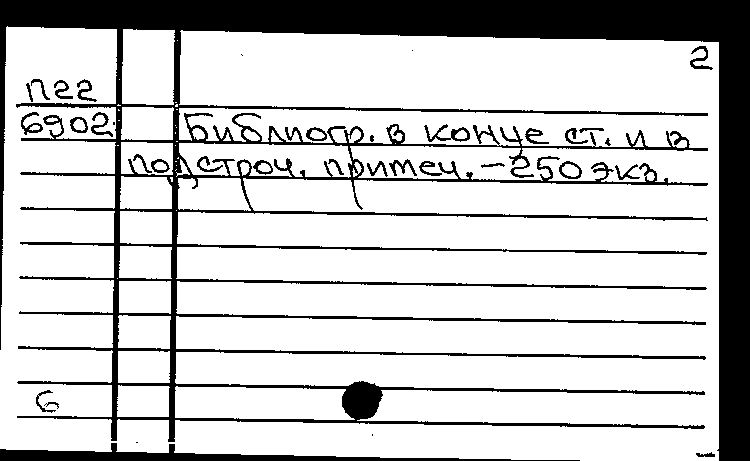 2
П22
6902 Библиогр. в конце ст. и в
подстроч. примеч. – 250 экз.
6